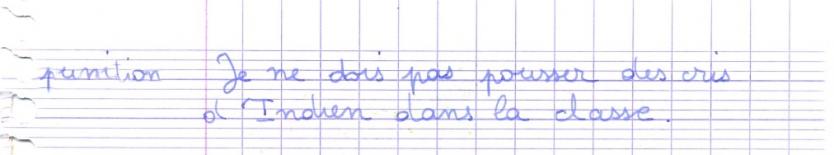 punition Je ne dois pas pousser des cris
d'Indien dans la classe.